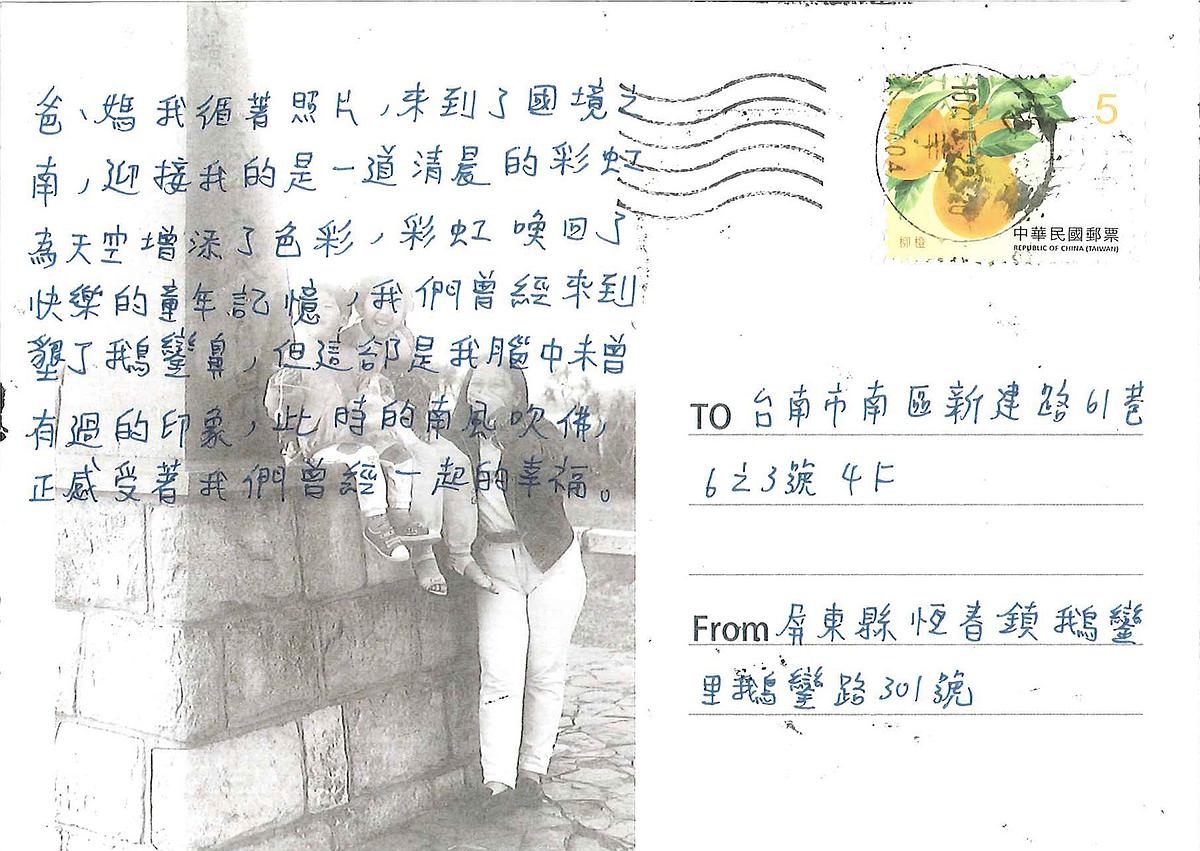 爸、媽我循著照片，來到了國境之
南，迎接我的是一道清晨的彩虹
為天空增添了色彩，彩虹喚回了
快樂的童年記憶，我們曾經來到
墾了鵝鑾鼻，但這部是我腦中未曾
有過的印象，此時的南風吹佛，
正感受著我們曾經一起的幸福。
5
柳橙
中華民國郵票
REPUBLIC OF CHINA (TAIWAN)
TO 台南市南區新建路61巷
6之3號4F
From 屏東縣恆春鎮鵝鑾
里鵝鑾路301號